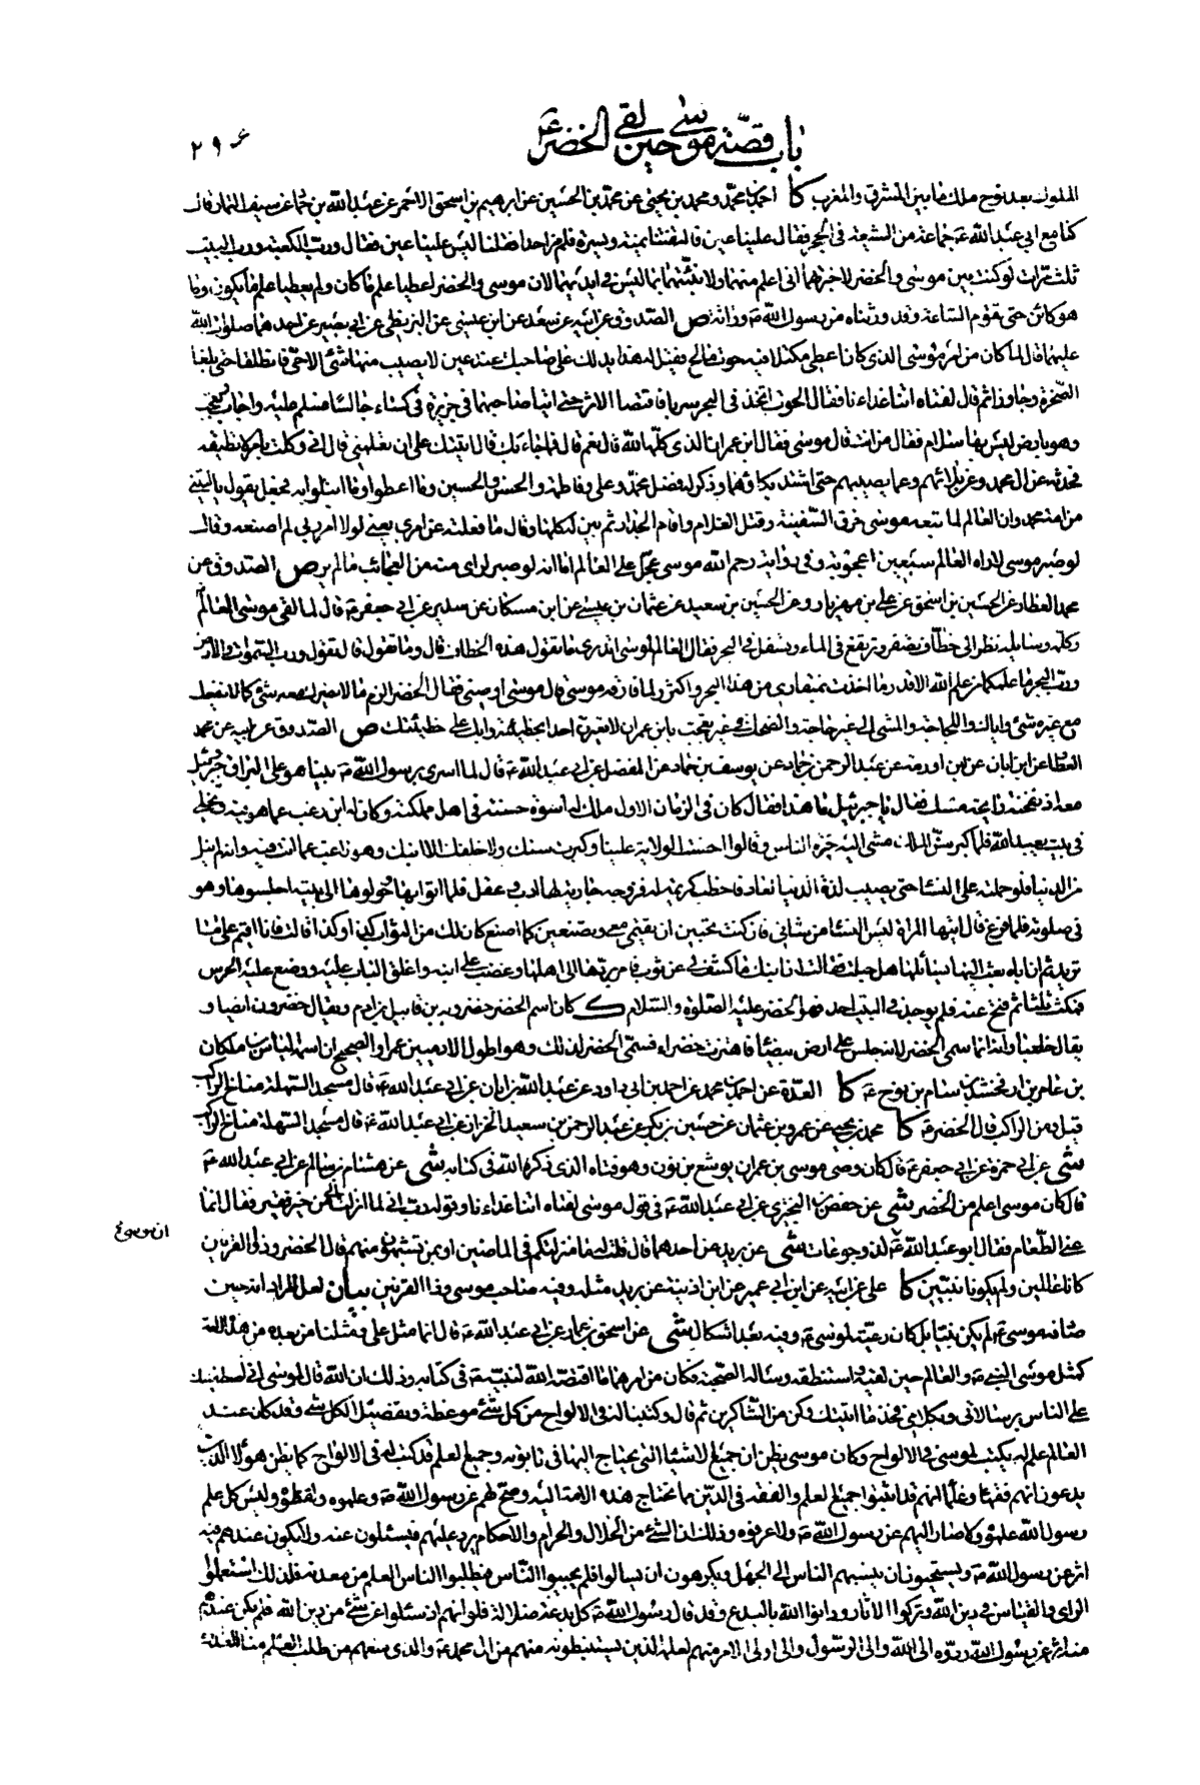 باب قصّة موسى حين لقى الخضر ع
۲۹۶
الملوك بعد نوح ملك ما بين المشرق والمغرب كا احمد بن محمد و محمد بن يحيى عن محمد بن الحسين عن ابرهيم بن اسحق الاحمر عن عبد الله بن حماد عن سيف التمار قال
كنا مع ابي عبد الله ع جماعة من الشيعة في الحجر فقال علينا عين فالتفتنا يمنة ويسرة فلم نر احدا فقلنا ليس علينا عين فقال ورب الكعبة ورب البيت
ثلث مرات لو كنت بين موسى والخضر لاخبرتهما انى اعلم منهما ولانبئتهما بما ليس في ايديهما لان موسى والخضر اعطيا علم ما كان ولم يعطيا علم ما يكون وما
هو كائن حتى تقوم الساعة وقد ورثناه من رسول الله ص وراثة ص الصدوق عن ابيه عن سعد عن ابن عيسى عن البزنطى عن ابي بصير عن احدهما صلوات الله
عليهما قال لما كان من امر موسى الذي كان اعطى مكتل فيه حوت مالح فقيل له هذا يدلك على صاحبك عند عين لا يصيب منها شئ الا حيّ فانطلقا حتى بلغا
الصخرة وجاوزا ثم قال لفتاه اتنا غداءنا فقال الحوت اتخذ في البحر سربا فاقتصا الاثر حتى اتيا صاحبهما في جزيرة في كساء جالسا فسلم عليه واجاب وتعجب
وهو بارض ليس بها سلام فقال من انت قال موسى فقال ابن عمران الذي كلمه الله قال نعم قال فما جاء بك قال اتيتك على ان تعلمني قال انى وكلت بامر لا تطيقه
فحدثه عن ال محمد وعن بلائهم وعما يصيبهم حتى اشتد بكاؤهما وذكر له فضل محمد وعلي وفاطمة والحسن والحسين وما اعطوا وما ابتلوا به فجعل يقول يا ليتني
من امة محمد وان العالم لما تبعه موسى خرق السفينة وقتل الغلام واقام الجدار ثم بين له كلها وقال ما فعلته عن امري يعنى لولا امر ربي لم اصنعه وقال
لو صبر موسى لاراه العالم سبعين اعجوبة وفي رواية رحم الله موسى عجل على العالم اما انه لو صبر لراى منه من العجائب ما لم ير ص الصدوق عن
محمد العطار عن الحسين بن اسحق عن علي بن مهزيار وعن الحسين بن سعيد عن عثمان بن عيسى عن ابن مسكان عن سدير عن ابي جعفر ع قال لما لقى موسى العالم
وكلمه وسايله نظر الى خطاف يصفر وترتفع في الماء ويسفل في البحر فقال العالم لموسى اتدري ما تقول هذه الخطاف قال وما تقول قال تقول ورب السموات والارض
ورب البحر ما علمكما من علم الله الا قدر ما اخذت بمنقاري من هذا البحر واكثر ولما فارقه موسى قال موسى اوصني فقال الخضر الزم ما لا يضرك معه شئ كما لا ينفعك
مع غيره شئ واياك واللجاجة والمشى الى غير حاجة والضحك في غير تعجب يا ابن عمران لا تعيرن احدا بخطيئته وابك على خطيئتك ص الصدوق عن ابيه عن محمد
العطار عن ابن ابان عن ابن اورمة عن عبد الرحمن بن حماد عن يوسف بن حماد عن المفضل عن ابي عبد الله ع قال لما اسرى برسول الله ص بينا هو على البراق وجبرئيل
معه اذ نفحته رايحة مسك فقال يا جبرئيل ما هذا فقال كان في الزمان الاول ملك له اسوة حسنة في اهل مملكته وكان له ابن رغب عما هو فيه وتخلى
في بيت يعبد الله فلما كبر سن الملك مشى اليه خيرة الناس وقالوا احسنت الولاية علينا وكبرت سنك ولا خلفك الا ابنك وهو راغب عما انت فيه وانه لم ينل
من الدنيا فلو حملته على النساء حتى يصيب لذة الدنيا لعاد فاخطب كريمة له فزوجه جارية لها ادب وعقل فلما اتوا بها وحولوها الى بيته اجلسوها وهو
في صلوته فلما فرغ قال ايتها المراة ليس النساء من شاني فان كنت تحبين ان تقيمي معي وتصنعين كما اصنع كان لك من الثواب كذا وكذا قالت فانا اقيم على ما
تريد ثم ان اباه بعث اليها يسائلها هل حبلت فقالت ان ابنك ما كشف لى عن ثوب فامر بردها الى اهلها وغضب على ابنه واغلق الباب عليه ووضع عليه الحرس
فمكث ثلثا ثم فتح عنه فلم يوجد في البيت احد فهو الخضر عليه الصلوة والسلام ك كان اسم الخضر خضرويه بن قابيل بن ادم ويقال خضرون ايضا و
يقال خلعبا وانه انما سمى الخضر لانه جلس على ارض بيضاء فاهتزت خضراء فسمى الخضر لذلك وهو اطول الادميين عمرا والصحيح ان اسمه الياس بن ملكان
بن عامر بن ارفخشد بن سام بن نوح ع كا العدة عن احمد بن محمد عن احمد بن ابي داود عن عبد الله بن ابان عن ابي عبد الله ع قال مسجد السهلة مناخ الراكب
قيل ومن الراكب قال الخضر ع كا محمد بن يحيى عن عمرو بن عثمان عن حسين بن بكر عن عبد الرحمن بن سعيد الخزاز عن ابي عبد الله ع قال مسجد السهلة مناخ الراكب
شى عن ابي حمزة عن ابي جعفر ع قال كان وصى موسى بن عمران يوشع بن نون وهو فتاه الذي ذكره الله في كتابه شى عن هشام بن سالم عن ابي عبد الله ع
قال كان موسى اعلم من الخضر شى عن حفص بن البختري عن ابي عبد الله ع في قول موسى لفتاه اتنا غداءنا وقوله رب انى لما انزلت الى من خير فقير فقال انما
عنى الطعام فقال ابو عبد الله ع لذو جوعات شى عن بريد عن احدهما قال قلت له ما منزلتكم في الماضين او بمن تشبهون منهم قال الخضر وذو القرنين
ان موسى ع
كانا عالمين ولم يكونا نبيين كا على عن ابيه عن ابن ابي عمير عن ابن اذينة عن بريد مثله وفيه صاحب موسى وذا القرنين بيان لعل المراد انه حين
صادف موسى ع لم يكن نبيا بل كان رعية لموسى ع وفيه بعد اشكال شى عن اسحق بن عمار عن ابي عبد الله ع قال انما مثل علي ومثلنا من بعده من هذه الامة
كمثل موسى النبي ع والعالم حين لقيه واستنطقه وساله الصحبة فكان من امرهما ما اقتصه الله لنبيه ص في كتابه وذلك ان الله قال لموسى انى اصطفيتك
على الناس برسالاتي وبكلامي فخذ ما اتيتك وكن من الشاكرين ثم قال وكتبنا له في الالواح من كل شئ موعظة وتفصيلا لكل شئ وقد كان عند
العالم علم لم يكتب لموسى في الالواح وكان موسى يظن ان جميع الاشياء التي يحتاج اليها في تابوته وجميع العلم قد كتب له في الالواح كما يظن هؤلاء الذين
يدعون انهم فقهاء وعلماء وانهم قد اثبتوا جميع العلم والفقه في الدين مما يحتاج هذه الامة اليه وصح لهم عن رسول الله ص وعلموه ولفظوه وليس كل علم
رسول الله علموه ولا صار اليهم عن رسول الله ص ولا عرفوه وذلك ان الشئ من الحلال والحرام والاحكام يرد عليهم فيسئلون عنه ولا يكون عندهم فيه
اثر عن رسول الله ص ويستحيون ان ينسبهم الناس الى الجهل ويكرهون ان يسالوا فلم يجيبوا الناس فيطلبوا الناس العلم من معدنه فلذلك استعملوا
الراى والقياس في دين الله وتركوا الاثار ودانوا الله بالبدع وقد قال رسول الله ص كل بدعة ضلالة فلو انهم اذ سئلوا عن شئ من دين الله فلم يكن عندهم
منه اثر عن رسول الله ردوه الى الله والى الرسول والى اولى الامر منهم لعلمه الذين يستنبطونه منهم من ال محمد ع والذي منعهم من طلب العلم منا العداوة